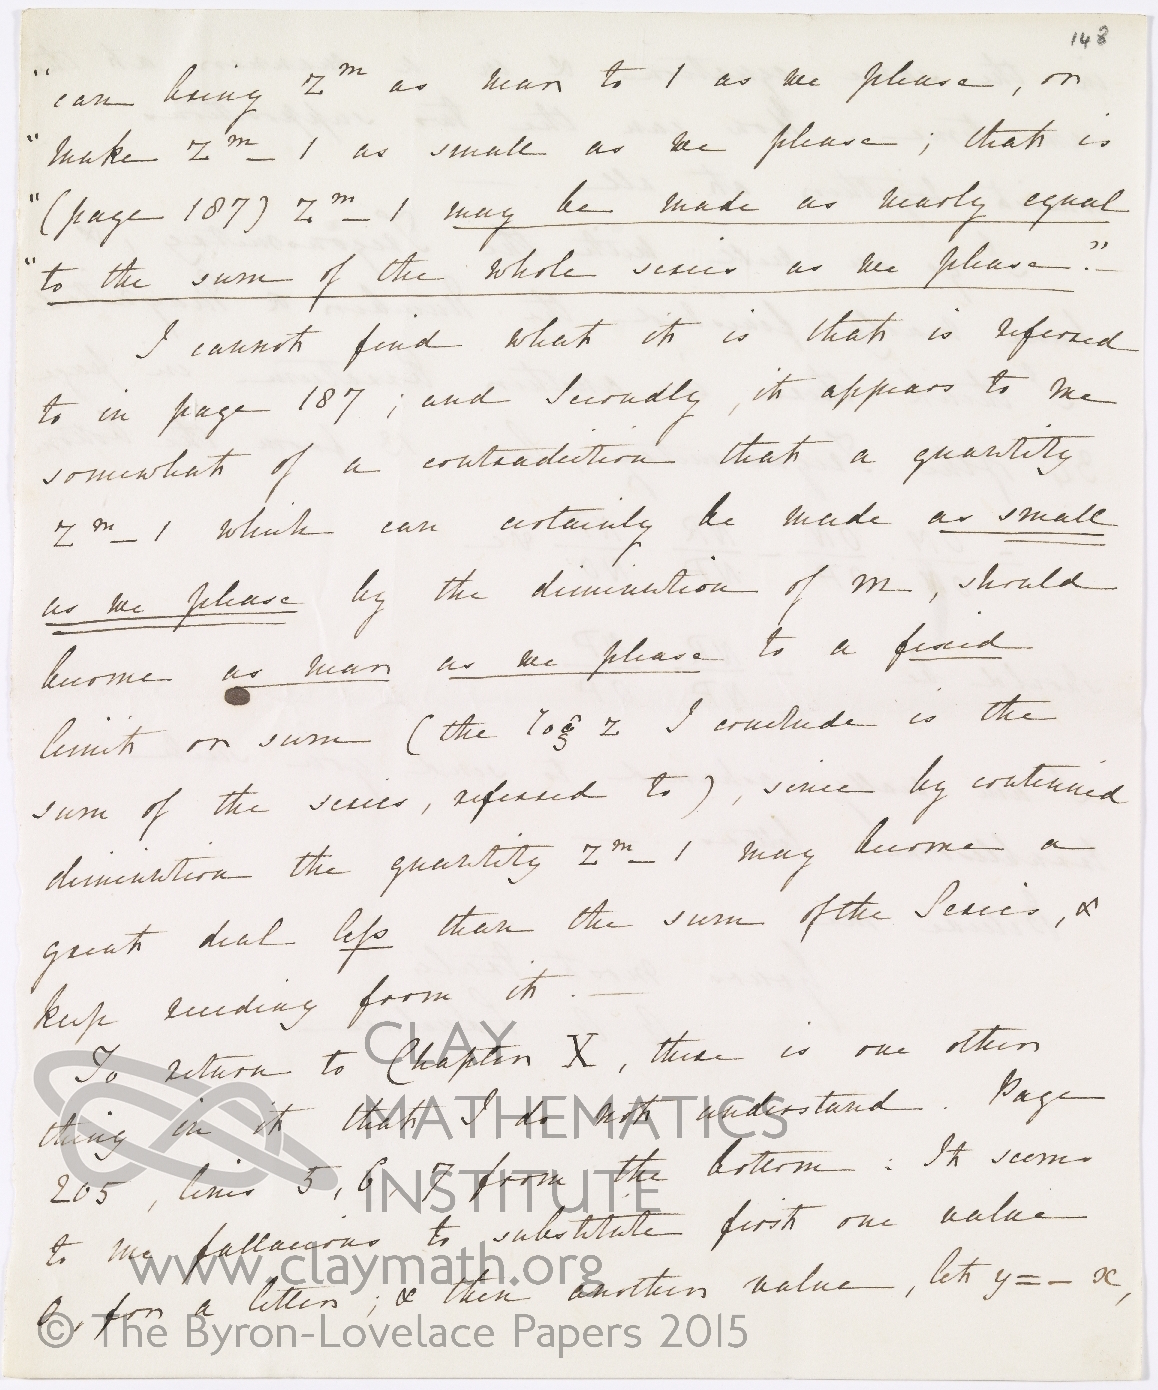 148
" can bring z^m as near to 1 as we please, or
" make z^m – 1 as small as we please; that is
" (page 187) z^m – 1 may be made as nearly equal
" to the sum of the whole series as we please." –
I cannot find what it is that is referred
to in page 187; and Secondly, it appears to me
somewhat of a contradiction that a quantity
z^m – 1 which can certainly be made as small
as we please by the diminution of m, should
become as near as we please to a fixed
limit or sum (the log z I conclude is the
sum of the series, referred to), since by continued
diminution the quantity z^m – 1 may become a
great deal less than the sum of the Series, &
keep receding from it. —
To return to Chapter X, there is one other
thing in it that I do not understand. Page
205, lines 5, 6, 7 from the bottom: It seems
to me fallacious to substitute first one value
0, for a letter; & then another value, let y = – x,
CLAY
MATHEMATICS
INSTITUTE
www.claymath.org
© The Byron-Lovelace Papers 2015